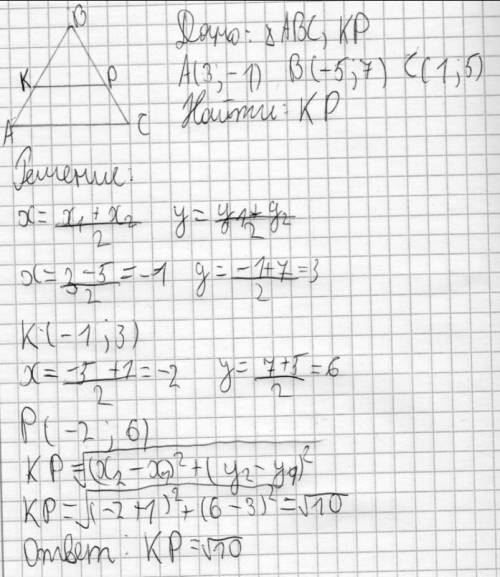 B
K P
A C
Дано: △ ABC, KP
A(3; -1) B(-5; 7) C(1; 5)
Найти: KP
Решение:
x = (x₁ + x₂)/2 y = (y₁ + y₂)/2
x = (3 - 5)/2 = -1 y = (-1+7)/2 = 3
K(-1; 3)
x = (-5 + 1)/2 = -2 y = (7+5)/2 = 6
P(-2; 6)
KP = √((x₂ - x₁)² + (y₂ - y₁)²)
KP = √((-2+1)² + (6-3)²) = √10
Ответ: KP = √10